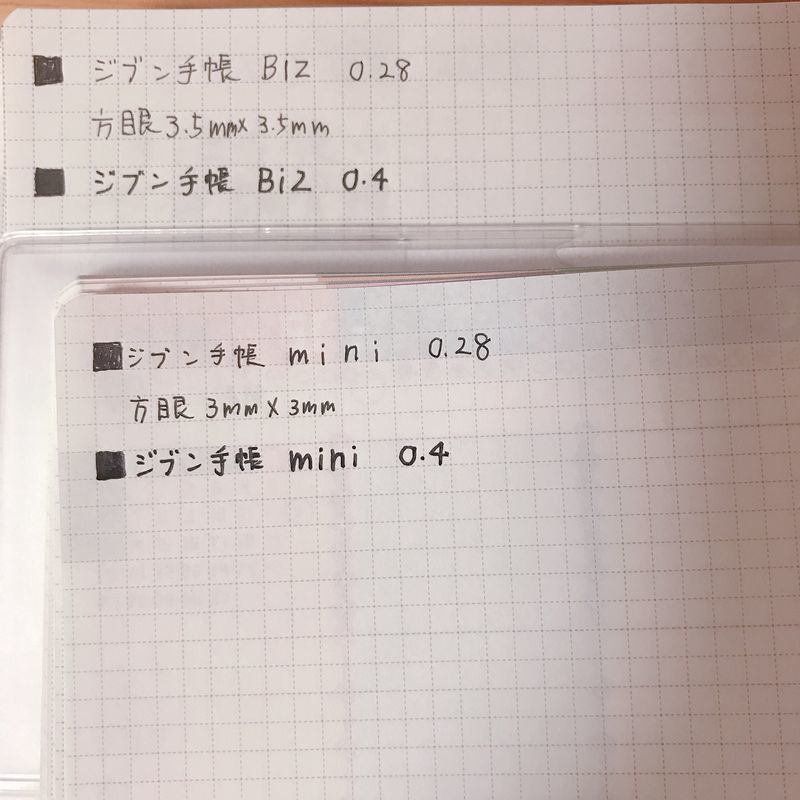 ■ ジブン手帳 Biz 0.28
方眼 3.5mm×3.5mm
■ ジブン手帳 Biz 0.4
■ ジブン手帳 mini 0.28
方眼 3mm×3mm
■ ジブン手帳 mini 0.4